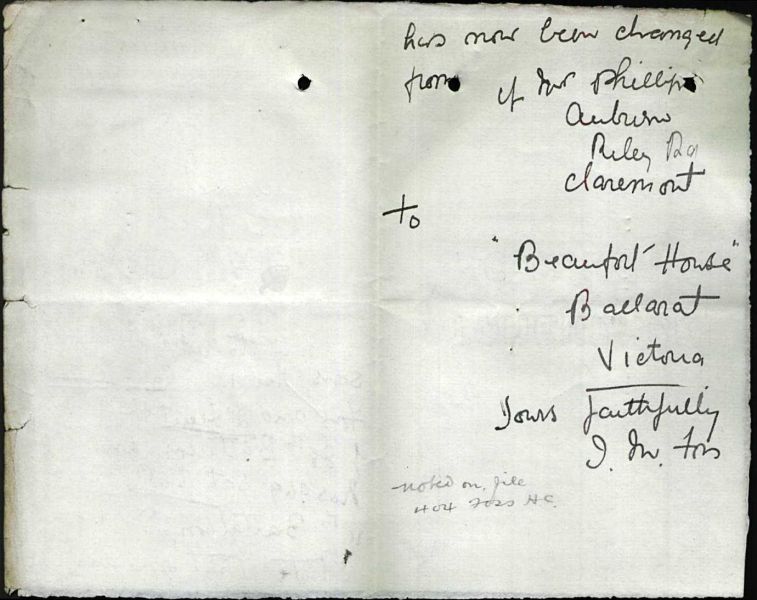 has now been changed
from c/o Mrs Phillips
Auburn
Riley Rd
Claremont
to
"Beaufort House"
Ballarat
Victoria
Yours faithfully
I. M. Foss
noted on file
HC.